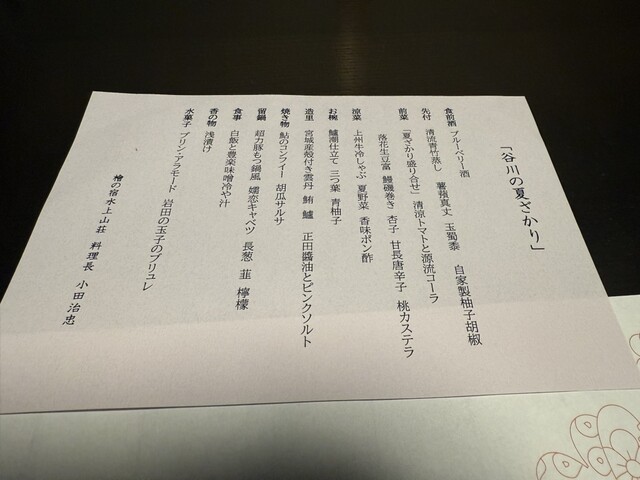 「谷川の夏ざかり」
食前酒 ブルーベリー酒
先付 清流青竹蒸し 薯蕷真丈 玉蜀黍 自家製柚子胡椒
前菜 「夏ざかり盛り合せ」 清涼トマトと源流コーラ
落花生豆富 鰻磯巻き 杏子 甘長唐辛子 桃カステラ
涼菜 上州牛冷しゃぶ 夏野菜 香味ポン酢
お椀 鱸潮仕立て 三つ葉 青柚子
造里 宮城産殻付き雲丹 鮪 鱸 正田醤油とピンクソルト
焼き物 鮎のコンフィー 胡瓜サルサ
留鍋 超力豚もつ鍋風 嬬恋キャベツ 長葱 韮 檸檬
食事 白飯と豊楽味噌冷や汁
香の物 浅漬け
水菓子 プリンアラモード 岩田の玉子のブリュレ
檜の宿水上山荘 料理長 小田治忠